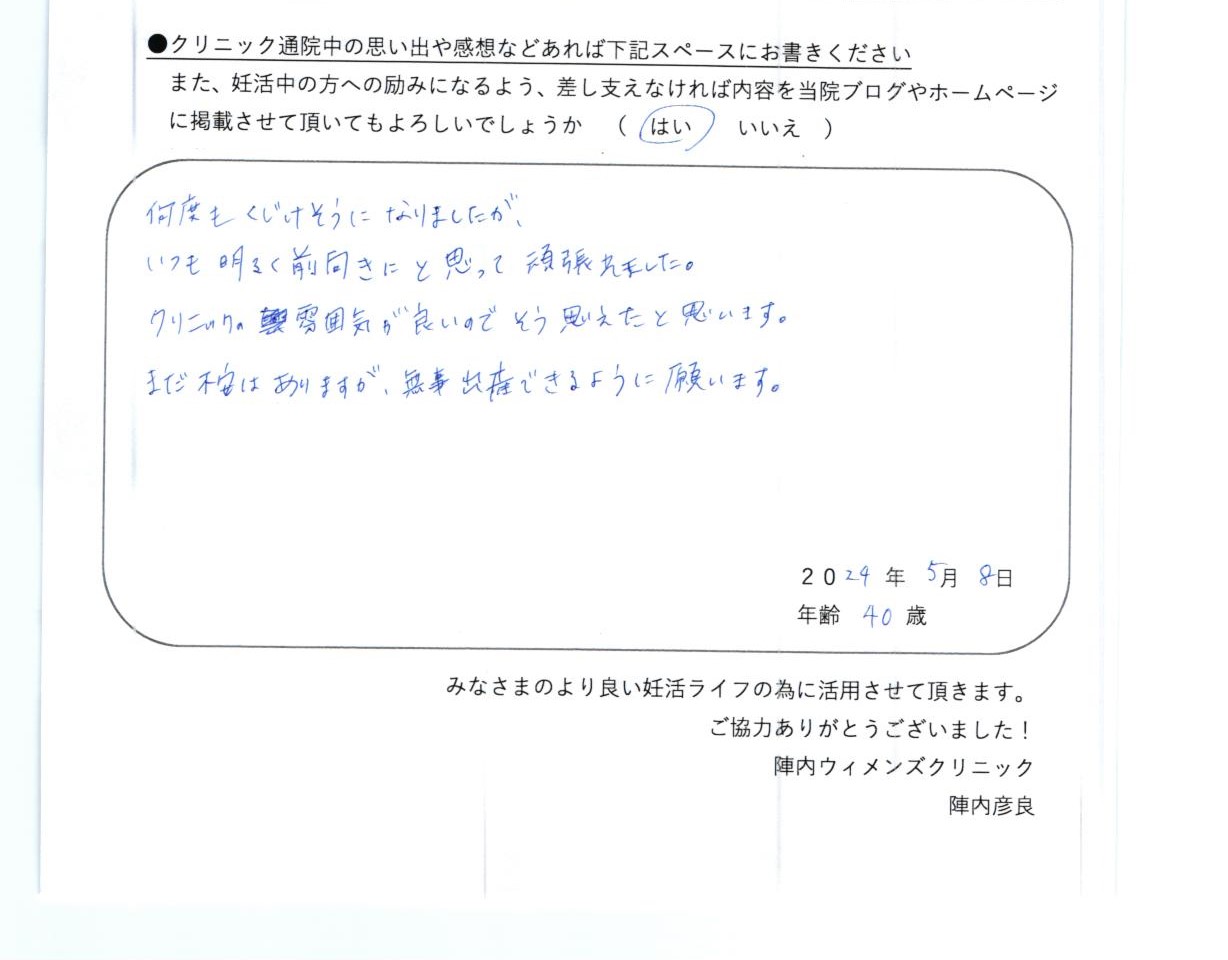 ●クリニック通院中の思い出や感想などあれば下記スペースにお書きください
また、妊活中の方への励みになるよう、差し支えなければ内容を当院ブログやホームページ
に掲載させて頂いてもよろしいでしょうか （ はい　いいえ ）
何度もくじけそうになりましたが、
いつも明るく前向きにと思って頑張れました。
クリニックの雰囲気が良いのでそう思えたと思います。
まだ不安はありますが、無事出産できるように願います。
2024年 5月 8日
年齢 40 歳
みなさまのより良い妊活ライフの為に活用させて頂きます。
ご協力ありがとうございました！
陣内ウィメンズクリニック
陣内彦良